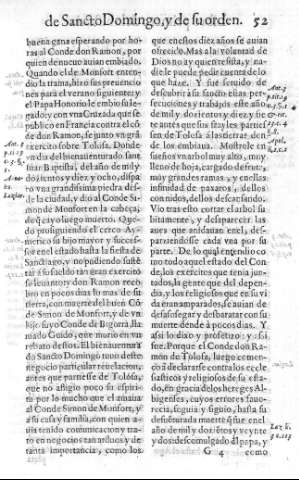 de Sancto Domingo, y de su orden. 52
buena gana esperando por horas
al Conde don Ramon, por
quien de nueuo auian embiado.
Quando el de Monfort entendio
la traña, hizo sus preuenciones
y el Papa Honorio le embio
y con vna Cruzada que se
publico en Francia contra el conde
don Ramon, se junto vn grã
exercito sobre Tolosa. Donde
vn dia del bienauenturado sant
Iuan Baptista, del año de mil y
dozientos y diez y ocho, disparo
vna grandissima piedra desde
la ciudad, y dio al Conde Simon
de Monfort en la cabeça,
de que cayo luego muerto. Quedo
prosiguiendo el cerco Aymerico
su hijo mayor y successor
en el estado hasta la fiesta de
Sanctiago, y no pudiendo sustentar
a su sueldo tan gran exercito
se leuanto y don Ramon recibio
en pocos dias lo mas de su
tierra, con muerte del buen Cõde
Simon de Monfort, y de vn
hijo suyo Conde de Bigorra, llamado
Guido, que murio en vn
rebato destos. El bienauenturado
Sancto Domingo tuuo deste
negocio particular reuelacion,
antes que partiesse de Tolosa,
que no afligio poco su espiritu
por lo mucho que el amaua
al Conde Simon de Monfort, y
a su casa y familia, con quien auia
tenido comunicacion y trato
en negocios tan arduos y de
tanta importancia, como los
que en estos diez años se auian
ofrecido. Mas a la voluntad de
Dios no ay quien resista, y nadie
le puede pedir cuenta de lo
que haze. El fue seruido de
descubrir a su sancto estas persecuciones
y trabajos este año
de mil y dozientos, y diez y siete
antes que sus frayles partiessen
de Tolosa a las tierras, donde
los embiaua. Mostrole en
sueños vn arbol muy alto, muy
lleno de hoja, cargado de fruta,
muy grandes ramas, y en ellas
infinidad de paxaros, dellos
con nidos, dellos descansando.
Vio tras esto cortar el arbol subitamente,
y desaparecer las
aues que anidauan en el, desparramandosse
cada vna por su
parte. De lo qual entendio como
todo aquel estado del Conde,
los exercitos que tenia juntados,
la gente que del dependia,
y los religiosos que en su vida
eran amparados, se auian de
desassossegar y desbaratar con su
muerte dende à pocos dias. Y
assi lo dixo y profetizo: y assi
fue. Porque el Conde don Ramon
de Tolosa, luego començo
à declararse contra los ecclesiasticos
y religiosos de su estado,
en gracia de los hereges Albigenses,
cuyos errores fauorecia,
seguia y siguio, hasta su
desuenturada muerte que fue
el año de mil y dozientos y veynte
y dos descomulgado del papa, y
G 4 como